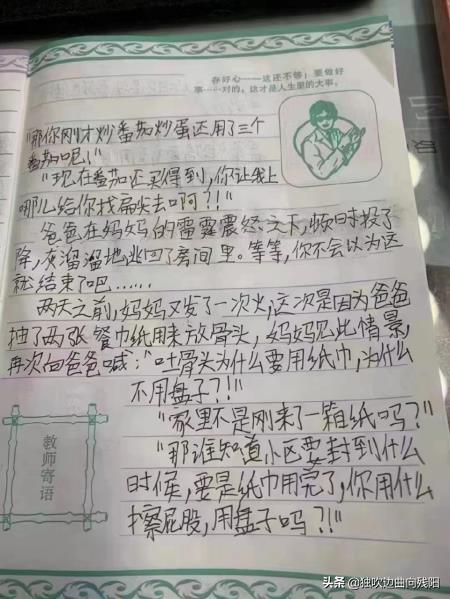 存好心——这还不够；要做好
事……对的，这才是人生里的大事。
"那你刚才炒番茄炒蛋还用了三个
番茄呢！"
"现在番茄还买得到，你让我上
哪儿给你找扁尖去啊？！"
爸爸在妈妈的雷霆震怒之下，顿时投了
降，灰溜溜地逃回了房间里。等等，你不会以为这
就结束了吧……
两天之前，妈妈又发了一次火，这次是因为爸爸
抽了两张餐巾纸用来放骨头，妈妈见此情景，
再次向爸爸喊："吐骨头为什么要用纸巾，为什么
不用盘子？！"
"家里不是刚来了一箱纸吗？"
"那谁知道小区要封到什么
时候，要是纸巾用完了，你用什么
擦屁股，用盘子吗？！"
教师寄语
头条 @独吹边曲向残阳